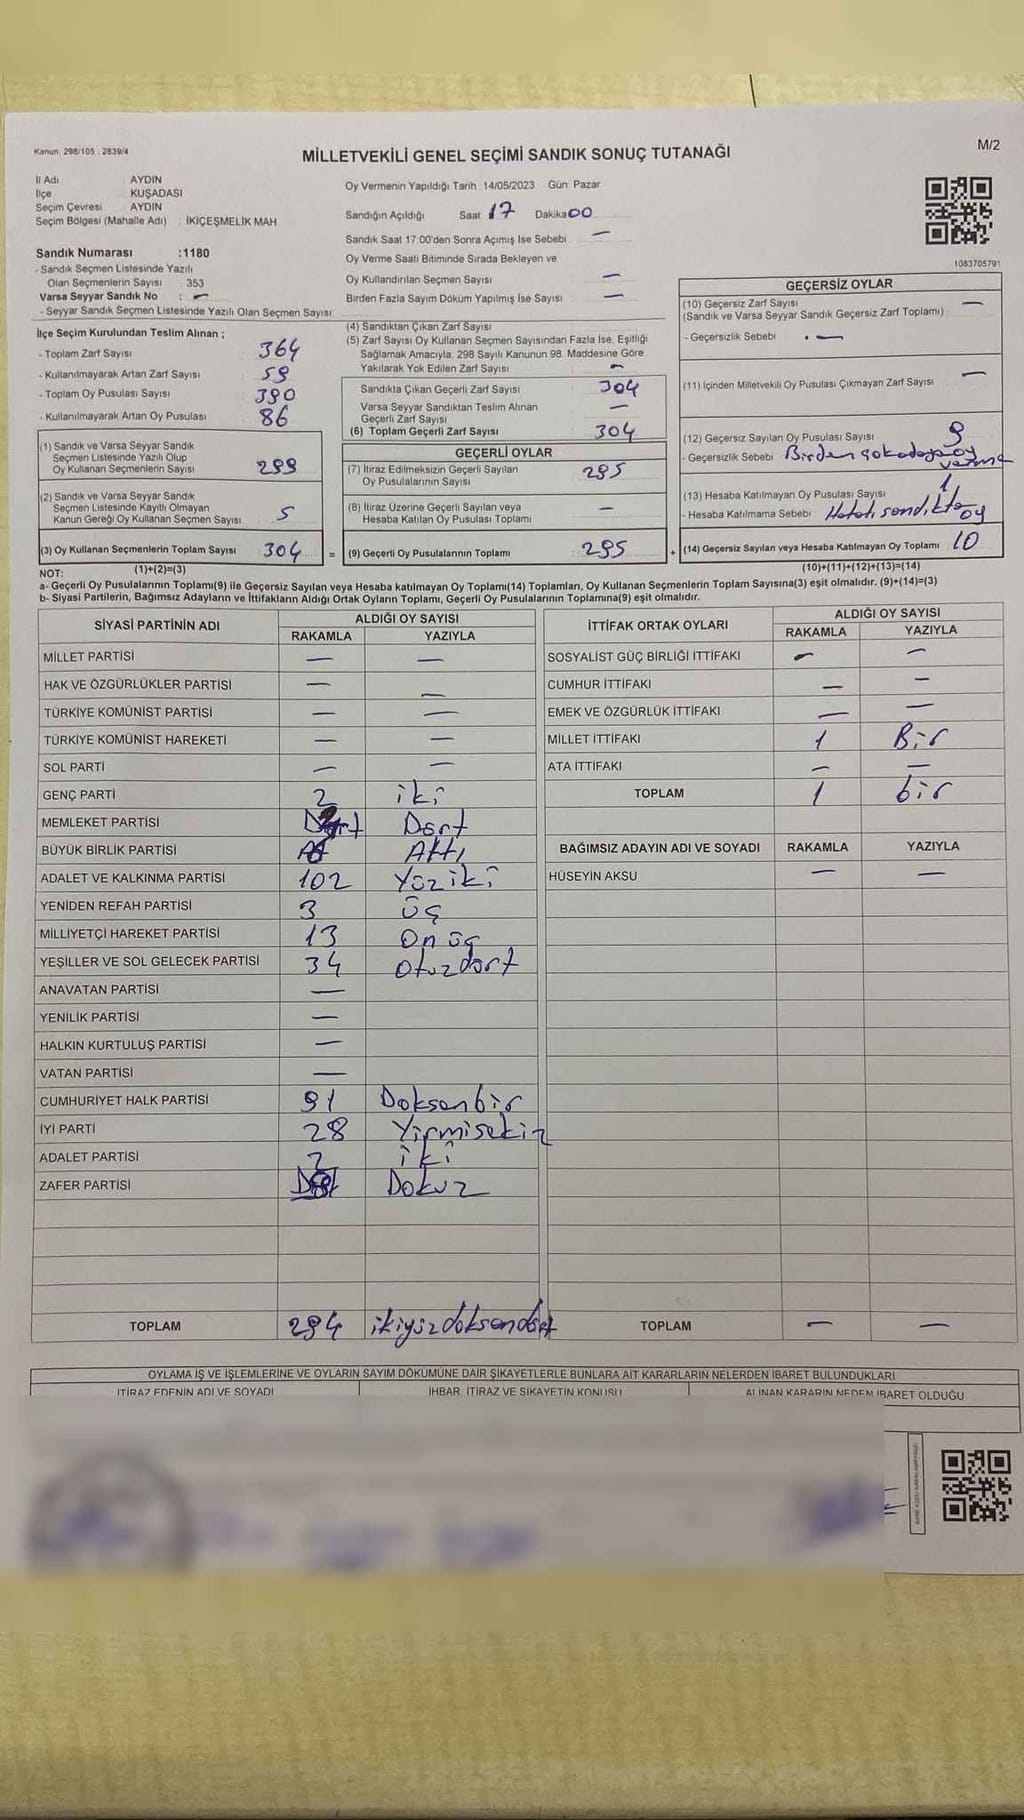 Kanun: 298/105 : 2839/4
MİLLETVEKİLİ GENEL SEÇİMİ SANDIK SONUÇ TUTANAĞI
M/2
İl Adı AYDIN
İlçe KUŞADASI
Seçim Çevresi AYDIN
Seçim Bölgesi (Mahalle Adı) : İKİÇEŞMELİK MAH
Oy Vermenin Yapıldığı Tarih : 14/05/2023 Gün: Pazar
Sandığın Açıldığı Saat 17 Dakika 00
Sandık Saat 17:00'den Sonra Açımış İse Sebebi —
Oy Verme Saati Bitiminde Sırada Bekleyen ve
Oy Kullandırılan Seçmen Sayısı —
Birden Fazla Sayım Döküm Yapılmış İse Sayısı —
Sandık Numarası :1180
- Sandık Seçmen Listesinde Yazılı
Olan Seçmenlerin Sayısı 353
Varsa Seyyar Sandık No : —
- Seyyar Sandık Seçmen Listesinde Yazılı Olan Seçmen Sayısı
İlçe Seçim Kurulundan Teslim Alınan ;
- Toplam Zarf Sayısı 364
- Kullanılmayarak Artan Zarf Sayısı 59
- Toplam Oy Pusulası Sayısı 390
- Kullanılmayarak Artan Oy Pusulası 86
(1) Sandık ve Varsa Seyyar Sandık
Seçmen Listesinde Yazılı Olup
Oy Kullanan Seçmenlerin Sayısı 299
(2) Sandık ve Varsa Seyyar Sandık
Seçmen Listesinde Kayıtlı Olmayan
Kanun Gereği Oy Kullanan Seçmen Sayısı 5
(3) Oy Kullanan Seçmenlerin Toplam Sayısı 304 =
(1)+(2)=(3)
(4) Sandıktan Çıkan Zarf Sayısı
(5) Zarf Sayısı Oy Kullanan Seçmen Sayısından Fazla İse, Eşitliği
Sağlamak Amacıyla, 298 Sayılı Kanunun 98. Maddesine Göre
Yakılarak Yok Edilen Zarf Sayısı —
Sandıkta Çıkan Geçerli Zarf Sayısı 304
Varsa Seyyar Sandıktan Teslim Alınan
Geçerli Zarf Sayısı —
(6) Toplam Geçerli Zarf Sayısı 304
GEÇERLİ OYLAR
(7) İtiraz Edilmeksizin Geçerli Sayılan
Oy Pusulalarının Sayısı 295
(8) İtiraz Üzerine Geçerli Sayılan veya
Hesaba Katılan Oy Pusulası Toplamı —
(9) Geçerli Oy Pusulalarının Toplamı 295 +
1083705791
GEÇERSİZ OYLAR
(10) Geçersiz Zarf Sayısı —
(Sandık ve Varsa Seyyar Sandık Geçersiz Zarf Toplamı)
- Geçersizlik Sebebi : —
(11) İçinden Milletvekili Oy Pusulası Çıkmayan Zarf Sayısı —
(12) Geçersiz Sayılan Oy Pusulası Sayısı 9
- Geçersizlik Sebebi Birden çok adaya oy
verme
(13) Hesaba Katılmayan Oy Pusulası Sayısı 1
- Hesaba Katılmama Sebebi Hatalı sandıkta oy
(14) Geçersiz Sayılan veya Hesaba Katılmayan Oy Toplamı 10
(10)+(11)+(12)+(13)=(14)
NOT:
a- Geçerli Oy Pusulalarının Toplamı(9) ile Geçersiz Sayılan veya Hesaba katılmayan Oy Toplamı(14) Toplamları, Oy Kullanan Seçmenlerin Toplam Sayısına(3) eşit olmalıdır. (9)+(14)=(3)
b- Siyasi Partilerin, Bağımsız Adayların ve İttifakların Aldığı Ortak Oyların Toplamı, Geçerli Oy Pusulalarının Toplamına(9) eşit olmalıdır.
SİYASİ PARTİNİN ADI
ALDIĞI OY SAYISI
RAKAMLA YAZIYLA
MİLLET PARTİSİ — —
HAK VE ÖZGÜRLÜKLER PARTİSİ — —
TÜRKİYE KOMÜNİST PARTİSİ — —
TÜRKİYE KOMÜNİST HAREKETİ — —
SOL PARTİ — —
GENÇ PARTİ 2 iki
MEMLEKET PARTİSİ Dört
BÜYÜK BİRLİK PARTİSİ Altı
ADALET VE KALKINMA PARTİSİ 102 Yüziki
YENİDEN REFAH PARTİSİ 3 üç
MİLLİYETÇİ HAREKET PARTİSİ 13 On üç
YEŞİLLER VE SOL GELECEK PARTİSİ 34 Otuzdört
ANAVATAN PARTİSİ —
YENİLİK PARTİSİ —
HALKIN KURTULUŞ PARTİSİ —
VATAN PARTİSİ —
CUMHURİYET HALK PARTİSİ 91 Doksanbir
İYİ PARTİ 28 Yirmisekiz
ADALET PARTİSİ 2 iki
ZAFER PARTİSİ Dokuz
TOPLAM 294 ikiyüzdoksandört
İTTİFAK ORTAK OYLARI
ALDIĞI OY SAYISI
RAKAMLA YAZIYLA
SOSYALİST GÜÇ BİRLİĞİ İTTİFAKI — —
CUMHUR İTTİFAKI — —
EMEK VE ÖZGÜRLÜK İTTİFAKI — —
MİLLET İTTİFAKI 1 Bir
ATA İTTİFAKI — —
TOPLAM 1 bir
BAĞIMSIZ ADAYIN ADI VE SOYADI RAKAMLA YAZIYLA
HÜSEYİN AKSU — —
TOPLAM — —
OYLAMA İŞ VE İŞLEMLERİNE VE OYLARIN SAYIM DÖKÜMÜNE DAİR ŞİKAYETLERLE BUNLARA AİT KARARLARIN NELERDEN İBARET BULUNDUKLARI
İTİRAZ EDENİN ADI VE SOYADI İHBAR, İTİRAZ VE ŞİKAYETİN KONUSU ALINAN KARARIN NEDEN İBARET OLDUĞU